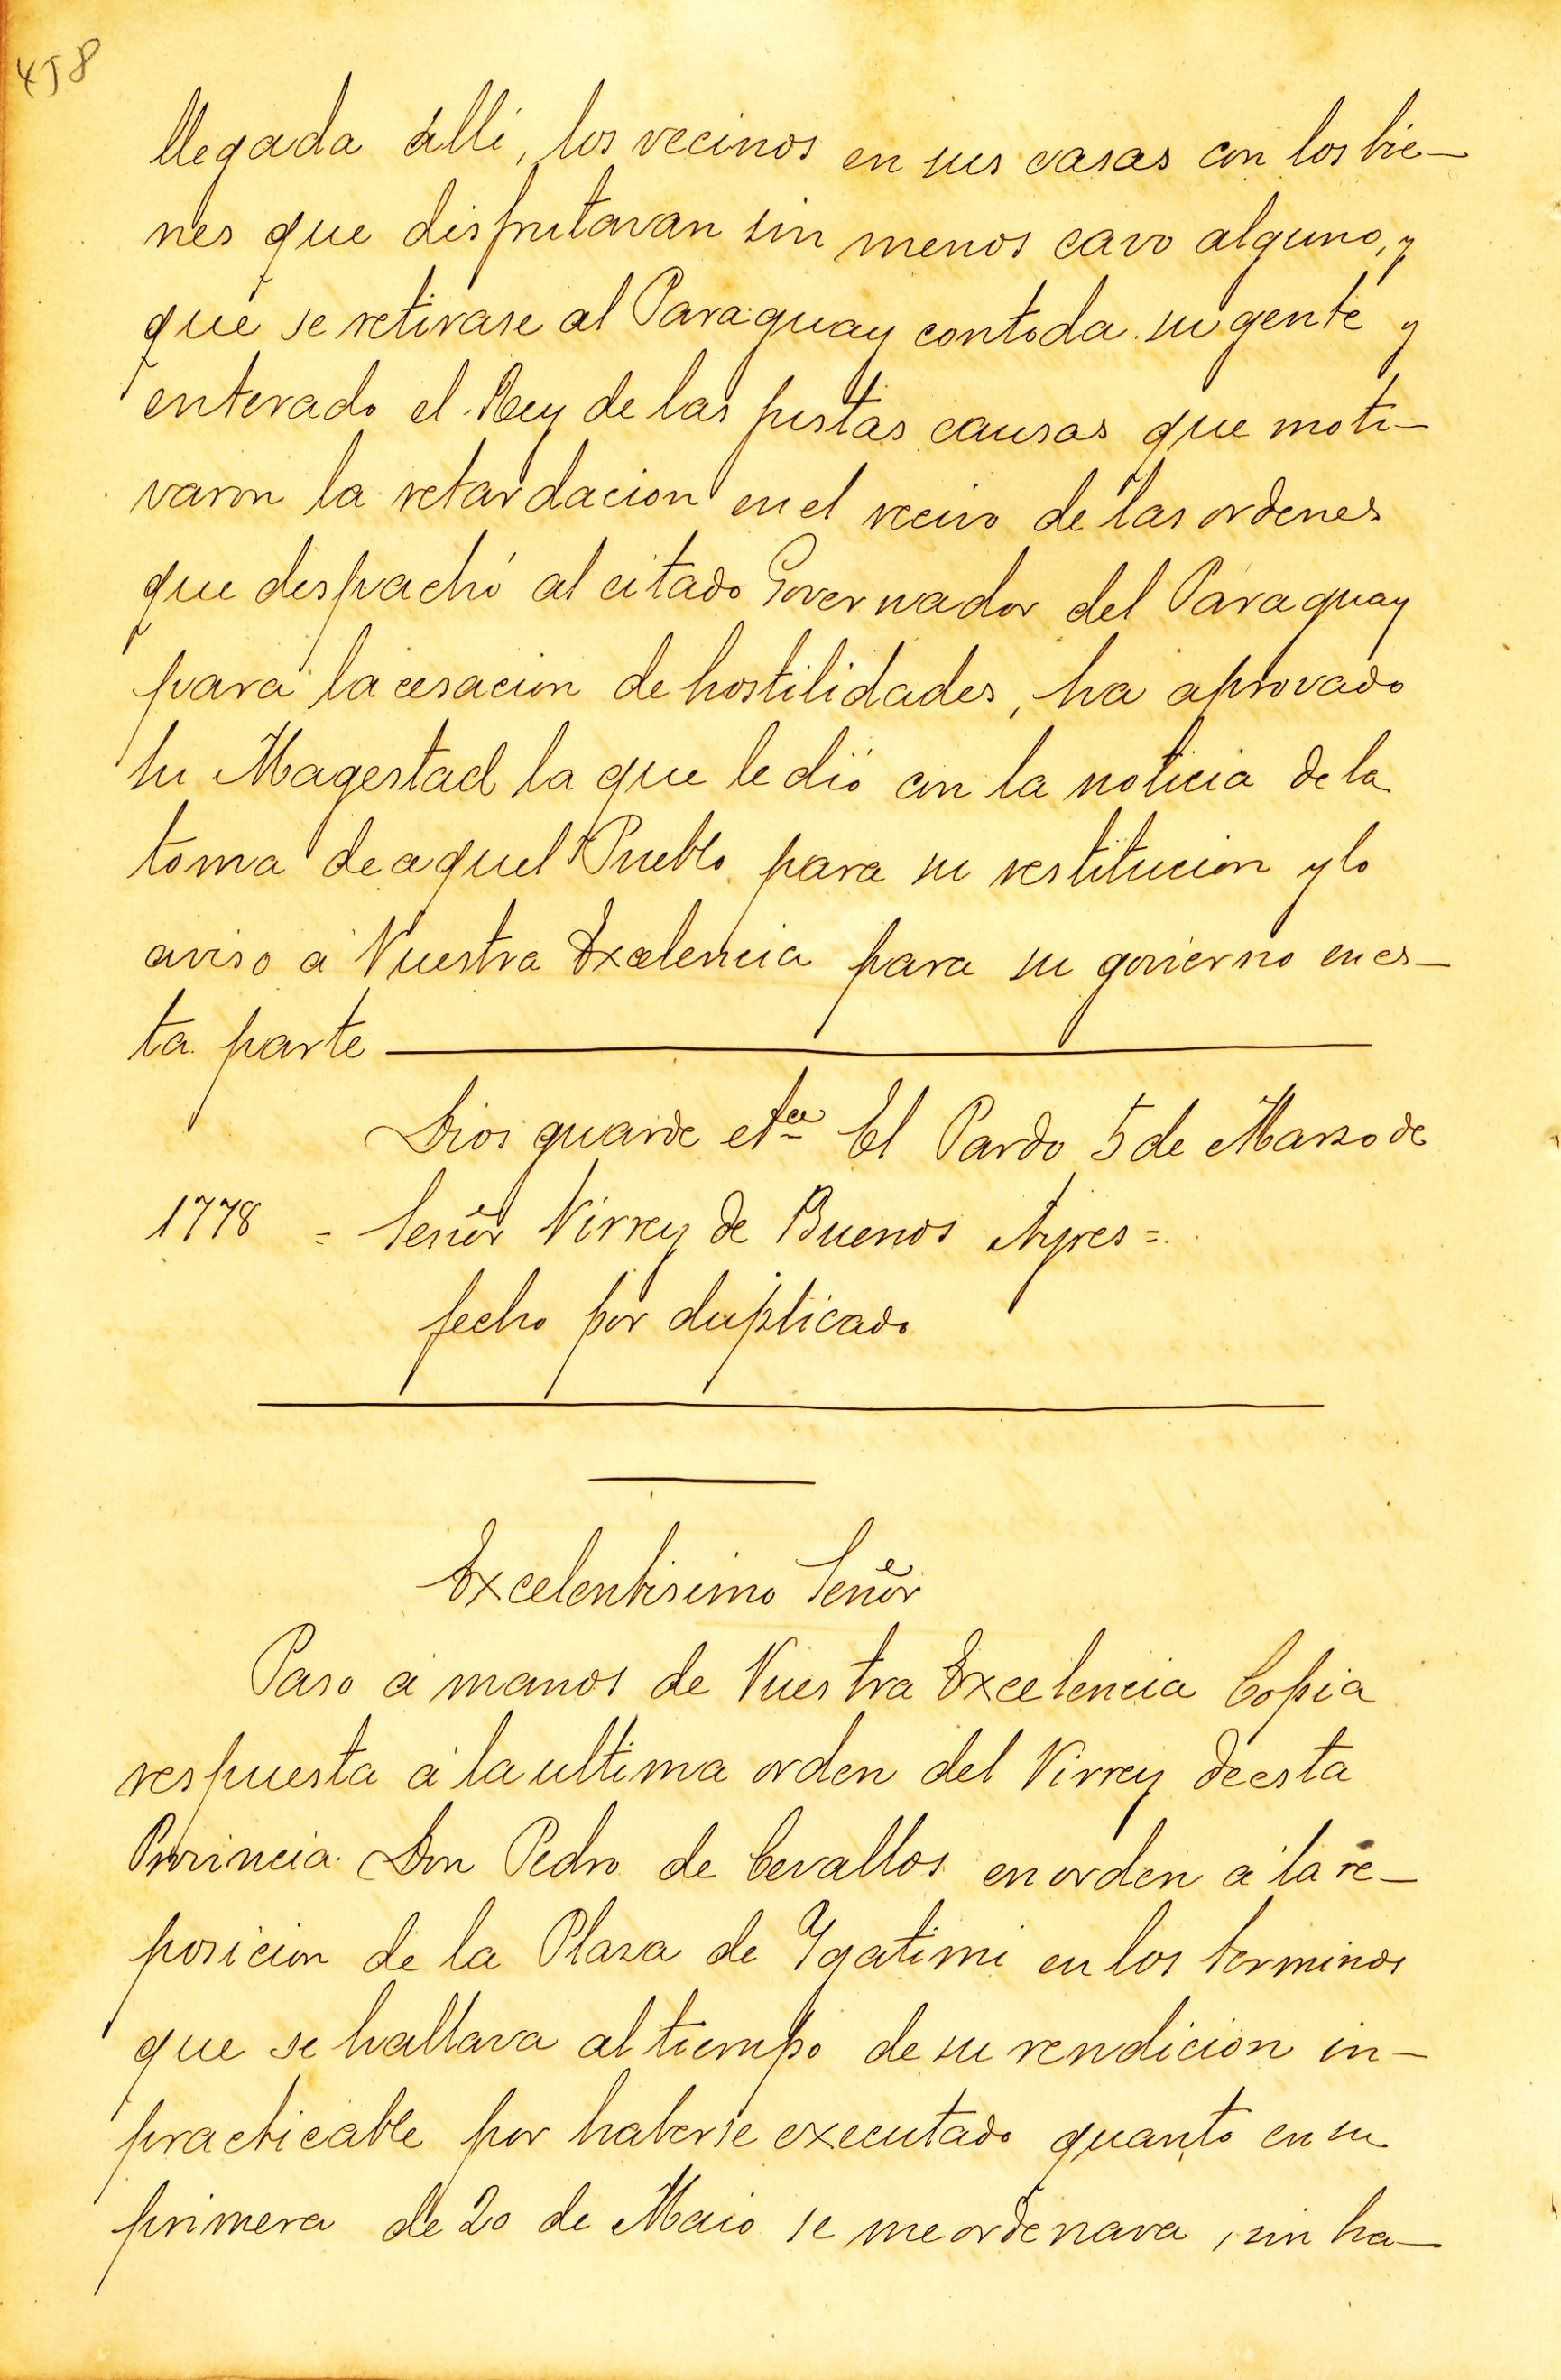 458
llegada alli, los vecinos en sus casas con los bie-
nes que disfrutavan sin menos cavo alguno, y
que se retirase al Paraguay contoda su gente y
enterado el Rey de las justas causas que moti-
varon la retardacion en el recivo de las ordenes
que despachó al citado Governador del Paraguay
para la cesacion de hostilidades, ha aprovado
su Magestad la que le dió con la noticia de la
toma de aquel Pueblo para su restitucion y lo
aviso á Vuestra Excelencia para su govierno en es-
ta parte
Dios guarde etca El Pardo 5 de Marzo de
1778 = Señor Virrey de Buenos Ayres =
fecho por duplicado
Excelentisimo Señor
Paso á manos de Vuestra Excelencia Copia
respuesta á la ultima orden del Virrey de esta
Provincia Don Pedro de Cevallos en orden á la re-
posicion de la Plaza de Ygatimi en los terminos
que se hallava al tiempo de su rendicion in-
practicable por haberse executado quanto en su
primera de 20 de Maio se me ordenava, sin ha-